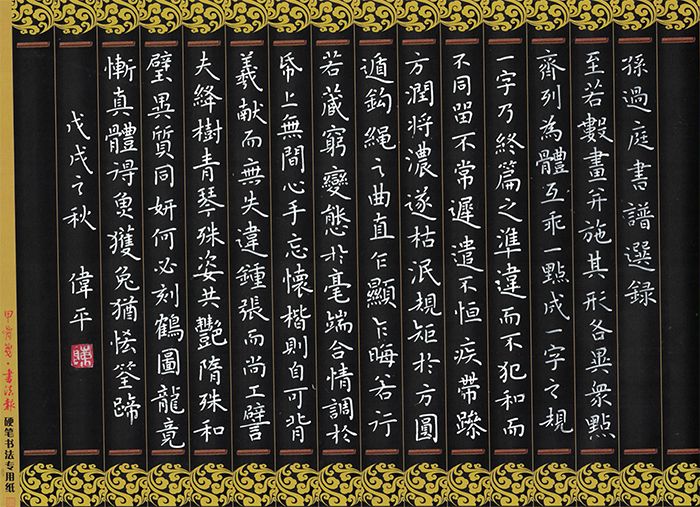 孫過庭書譜選録
至若數畫并施其形各異衆點
齊列為體互乖一點成一字之規
一字乃終篇之準違而不犯和而
不同留不常遲遣不恒疾帶燥
方潤将濃遂枯泯規矩於方圓
遁鈎繩之曲直乍顯乍晦若行
若藏窮變態於毫端合情調於
帋上無間心手忘懷楷則自可背
羲献而無失違鍾張而尚工譬
夫絳樹青琴殊姿共艷隋珠和
璧異質同妍何必刻鶴圖龍竟
慚真體得魚獲兔猶恡筌蹄
戊戌之秋 偉平
書法報 硬笔书法专用纸